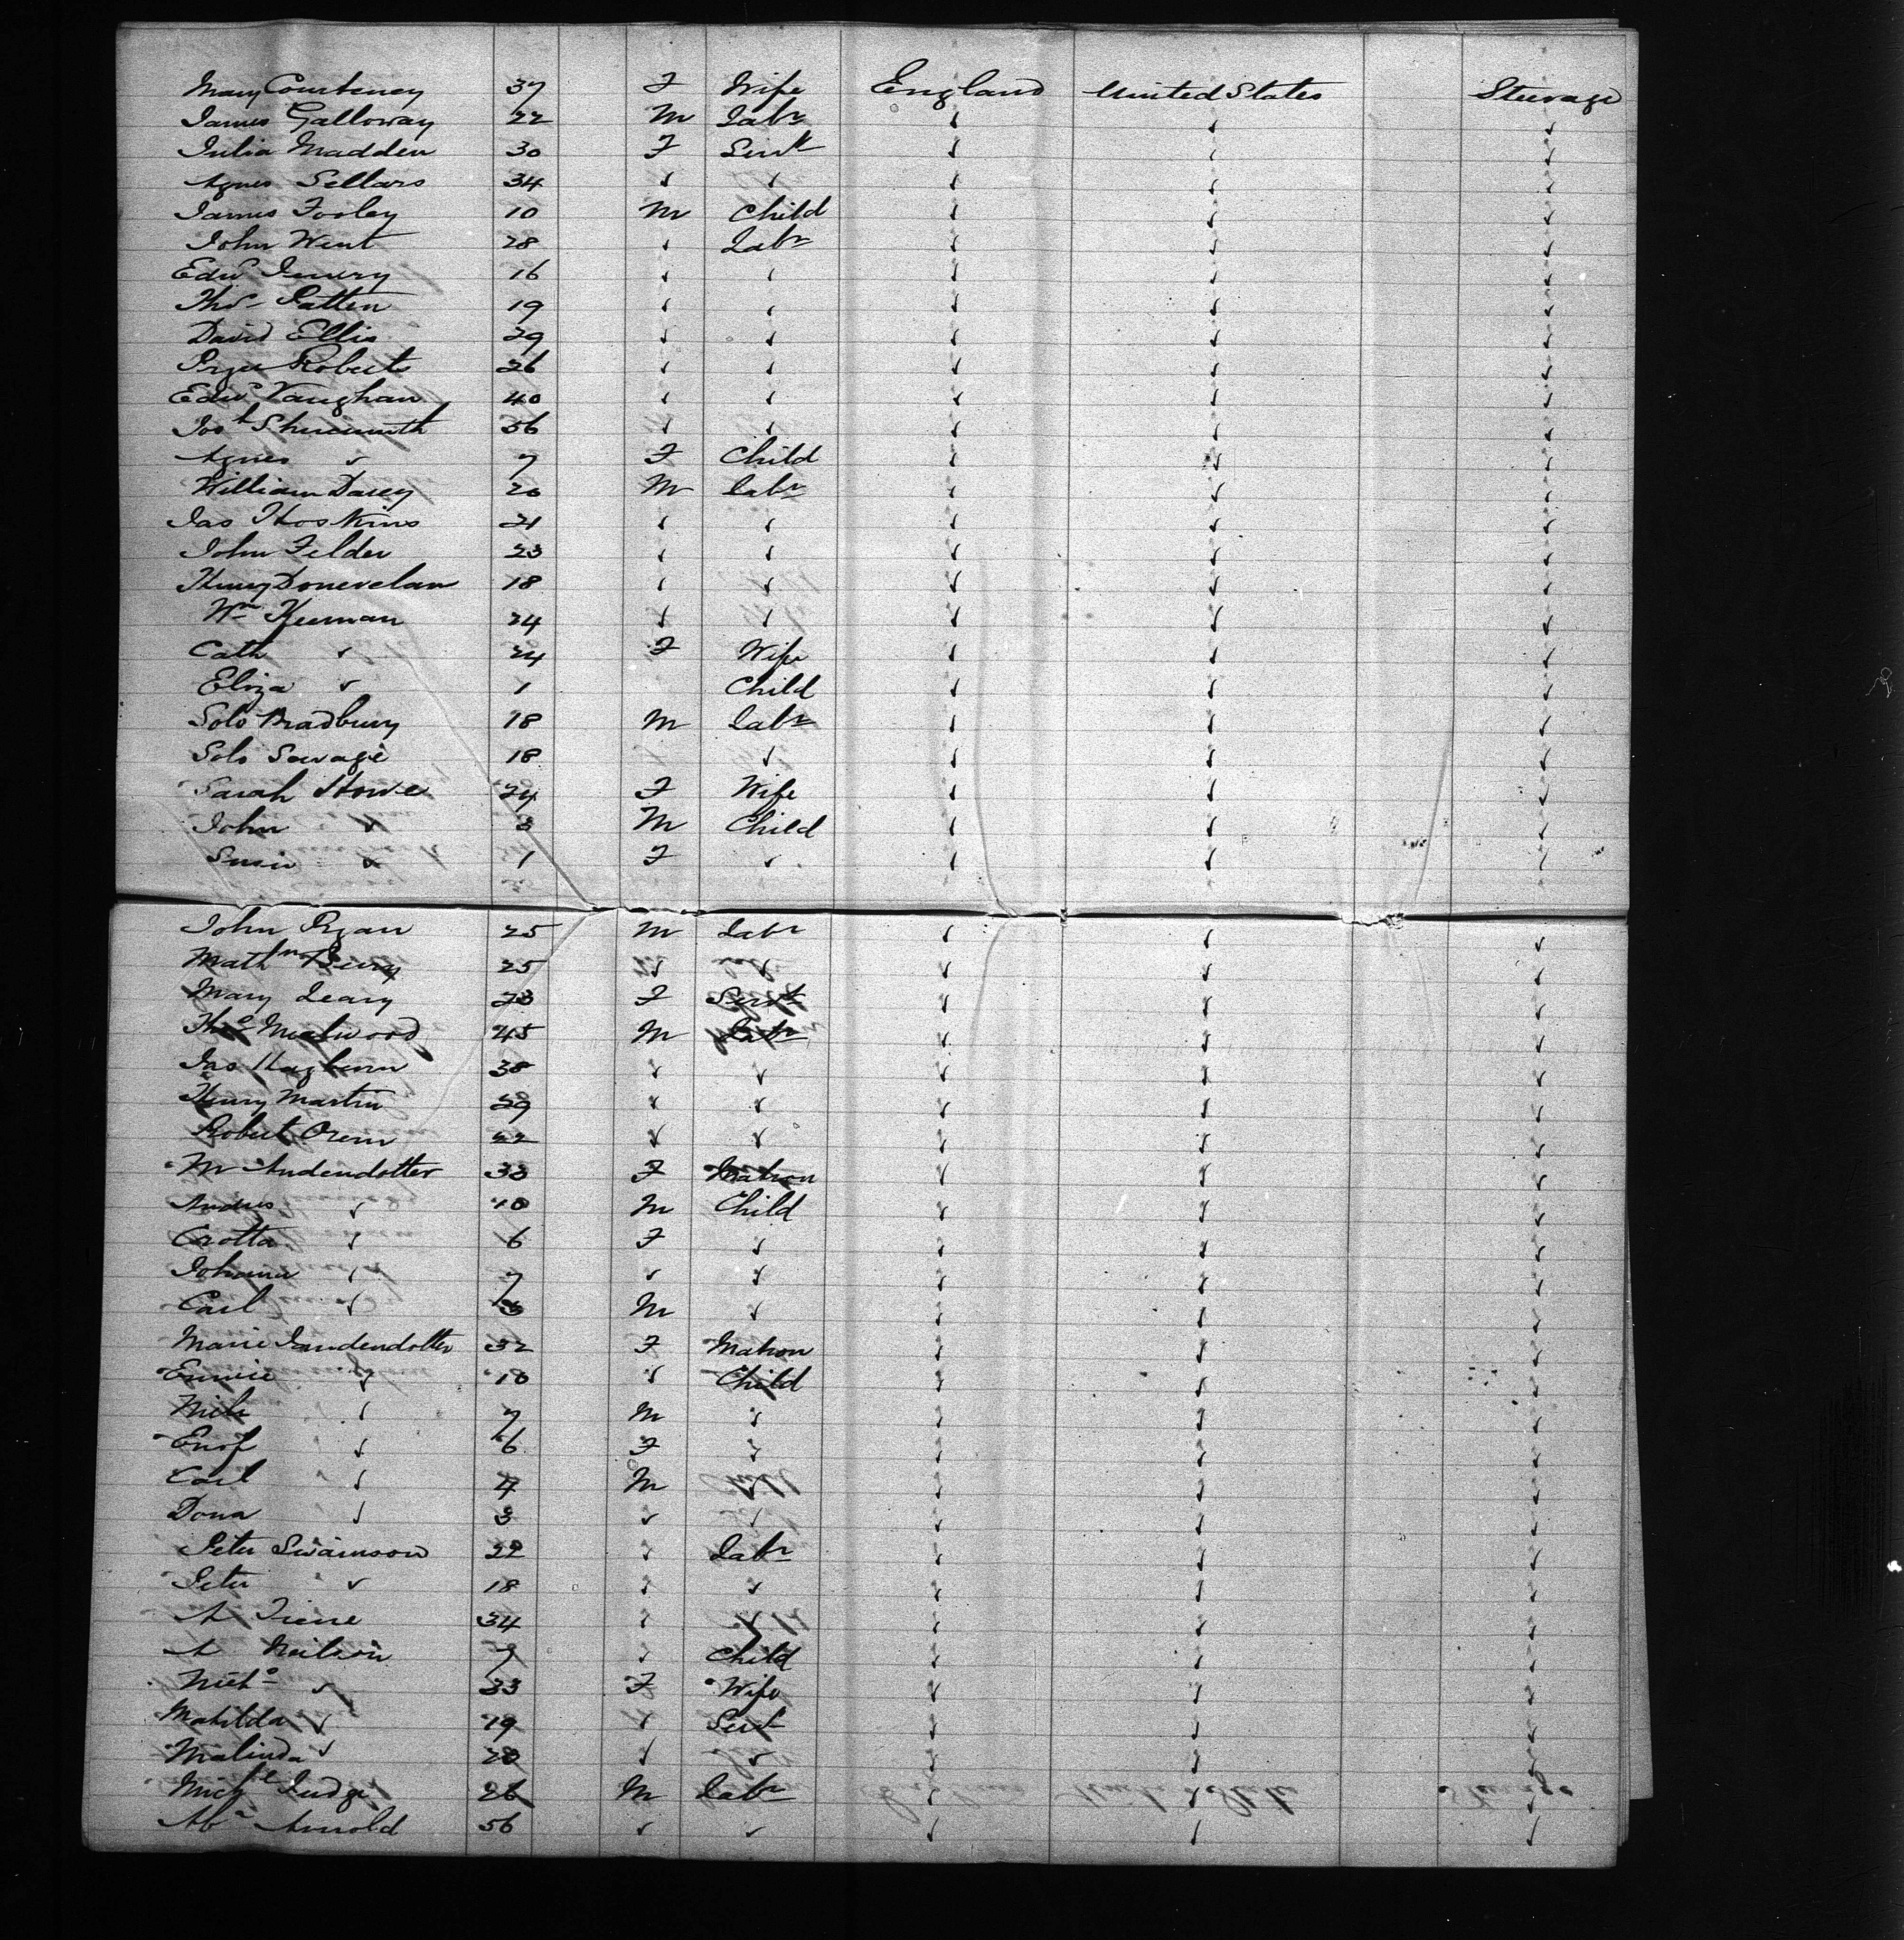 Mary Courteney 37 F Wife England United States Steerage
James Galloway 22 M Labr ✓ ✓ ✓
Julia Madden 30 F Servt ✓ ✓ ✓
Agnes Sellars 34 ✓ ✓ ✓ ✓ ✓
James Fooley 10 M Child ✓ ✓ ✓
John Went 28 ✓ Labr ✓ ✓ ✓
Edwd 16 ✓ ✓ ✓ ✓ ✓
Thos Patten 19 ✓ ✓ ✓ ✓ ✓
David Ellis 29 ✓ ✓ ✓ ✓ ✓
Roberts 26 ✓ ✓ ✓ ✓ ✓
Edwd Vaughan 40 ✓ ✓ ✓ ✓ ✓
Josh 36 ✓ ✓ ✓ ✓ ✓
Agnes ✓ 7 F Child ✓ ✓ ✓
William Darcy 20 M Labr ✓ ✓ ✓
Jas Hoskins 21 ✓ ✓ ✓ ✓ ✓
John Felder 23 ✓ ✓ ✓ ✓ ✓
Henry Donevelan 18 ✓ ✓ ✓ ✓ ✓
Wm Keernan 24 ✓ ✓ ✓ ✓ ✓
Cath ✓ 24 F Wife ✓ ✓ ✓
Eliza ✓ 1 Child ✓ ✓ ✓
Solo Bradbury 18 M Labr ✓ ✓ ✓
Solo Savage 18 ✓ ✓ ✓ ✓
Sarah Howe 24 F Wife ✓ ✓ ✓
John ✓ 3 M Child ✓ ✓ ✓
Susie ✓ 1 F ✓ ✓ ✓ ✓
John Ryan 25 M Labr ✓ ✓ ✓
Mathw Berry 25 ✓ ✓ ✓ ✓ ✓
Mary Leary 23 F Servt ✓ ✓ ✓
Thos Mealwood 45 M Labr ✓ ✓ ✓
Jas Hayburn 38 ✓ ✓ ✓ ✓ ✓
Henry Martin 29 ✓ ✓ ✓ ✓ ✓
Robert Orem 22 ✓ ✓ ✓ ✓ ✓
M Andendotter 33 F Matron ✓ ✓ ✓
Andres ✓ 10 M Child ✓ ✓ ✓
Crotta ✓ 6 F ✓ ✓ ✓ ✓
Johanna ✓ 7 ✓ ✓ ✓ ✓ ✓
Carl ✓ 3 M ✓ ✓ ✓ ✓
Marie Jandendotter 32 F Matron ✓ ✓ ✓
Emmie ✓ 10 ✓ Child ✓ ✓ ✓
Nich ✓ 7 M ✓ ✓ ✓ ✓
Enof ✓ 6 F ✓ ✓ ✓ ✓
Carl ✓ 4 M ✓ ✓ ✓ ✓
Dona ✓ 3 ✓ ✓ ✓ ✓ ✓
Peter Swainson 22 ✓ Labr ✓ ✓ ✓
Peter ✓ 18 ✓ ✓ ✓ ✓ ✓
A 34 ✓ ✓ ✓ ✓ ✓
A Neilson 7 ✓ Child ✓ ✓ ✓
Richo ✓ 33 F Wife ✓ ✓ ✓
Mathilda ✓ 19 ✓ Servt ✓ ✓ ✓
Malinda ✓ 20 ✓ ✓ ✓ ✓ ✓
Michl Judge 26 M Labr ✓ ✓ ✓
Abm Arnold 56 ✓ ✓ ✓ ✓ ✓